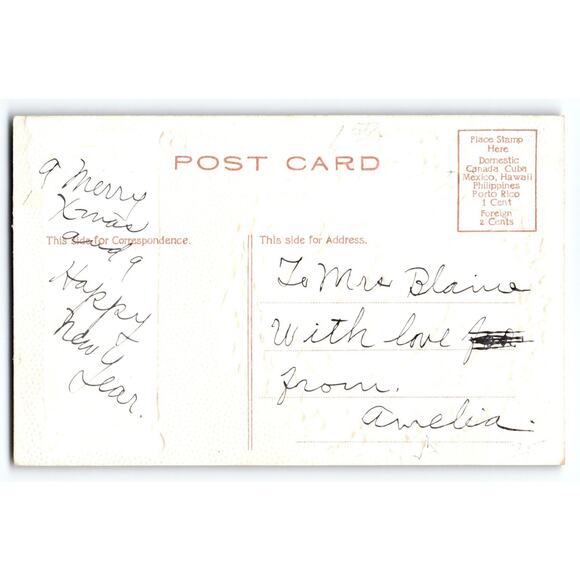 POST CARD
Place Stamp
Here
Domestic
Canada Cuba
Mexico, Hawaii
Philippines
Porto Rico
1 Cent
Foreign
2 Cents
This side for Correspondence.
This side for Address.
a Merry
Xmas
and a
Happy
New
Year.
To Mrs Blaine
With love
from.
Amelia.